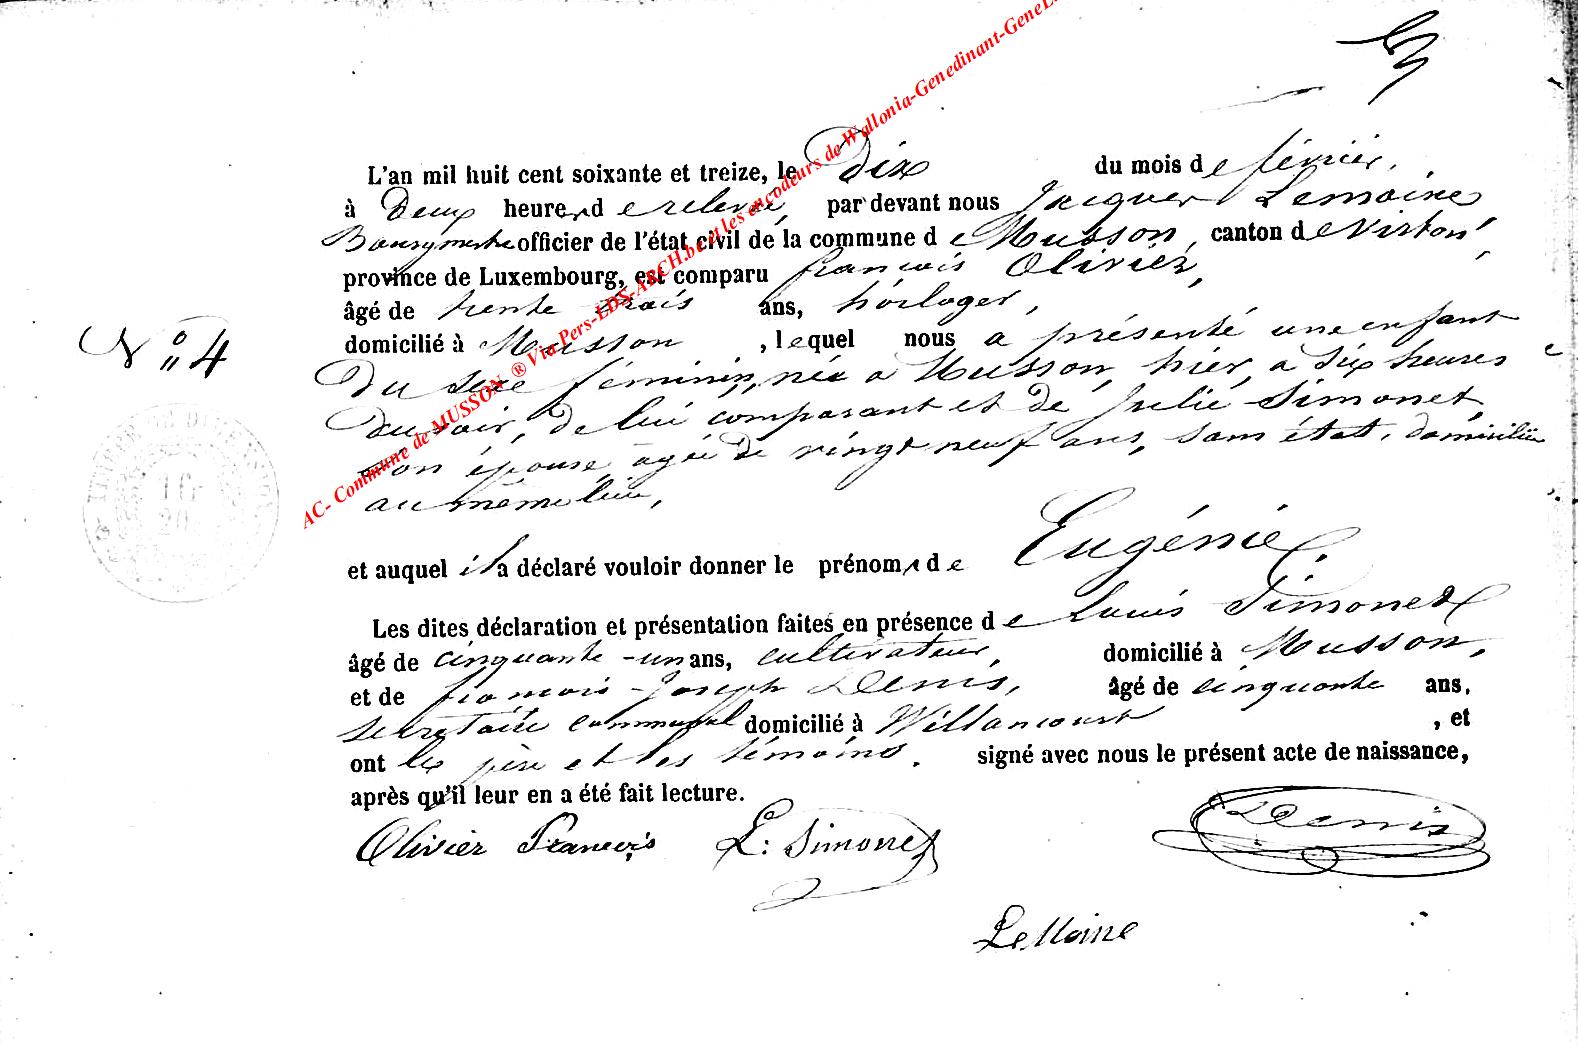 L'an mil huit cent soixante et treize, le Dix du mois de février,
à Deux heures de relevée, par devant nous Jacques Lemoine
Bourgmestre officier de l'état civil de la commune de Musson, canton de Virton,
province de Luxembourg, est comparu françois Olivier,
âgé de trente trois ans, horloger,
domicilié à Musson, lequel nous a présenté une enfant
Du sexe féminin, née a Musson, hier, a six heures
Du soir, de lui comparant et de Julie Simonet,
son épouse, agée de vingt neuf ans, sans état, domiciliée
au même lieu,
N° 4
et auquel il a déclaré vouloir donner le prénom de Eugénie.
Les dites déclaration et présentation faites en présence de Louis Simonet
âgé de cinquante-un ans, cultivateur, domicilié à Musson,
et de françois-Joseph Denis, âgé de cinquante ans,
secretaire communal domicilié à Willancourt, et
ont les père et les témoins. signé avec nous le présent acte de naissance,
après qu'il leur en a été fait lecture.
Olivier François L: Simonet Denis
LeMoine
AC- Commune de MUSSON ® Via Pers-LDS-ARCH.be et les encodeurs de Wallonia-Genedinant-GeneL